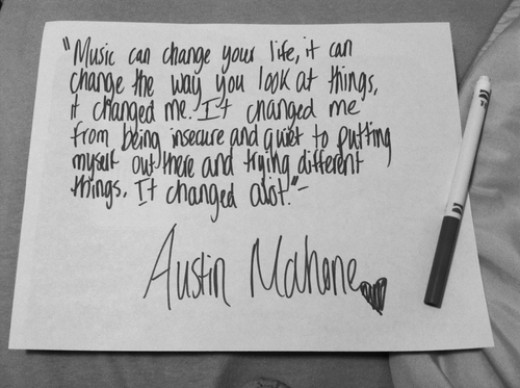 "Music can change your life, it can
change the way you look at things,
it changed me. It changed me
from being insecure and quiet to putting
myself out there and trying different
things. It changed alot."-
Austin Mahone